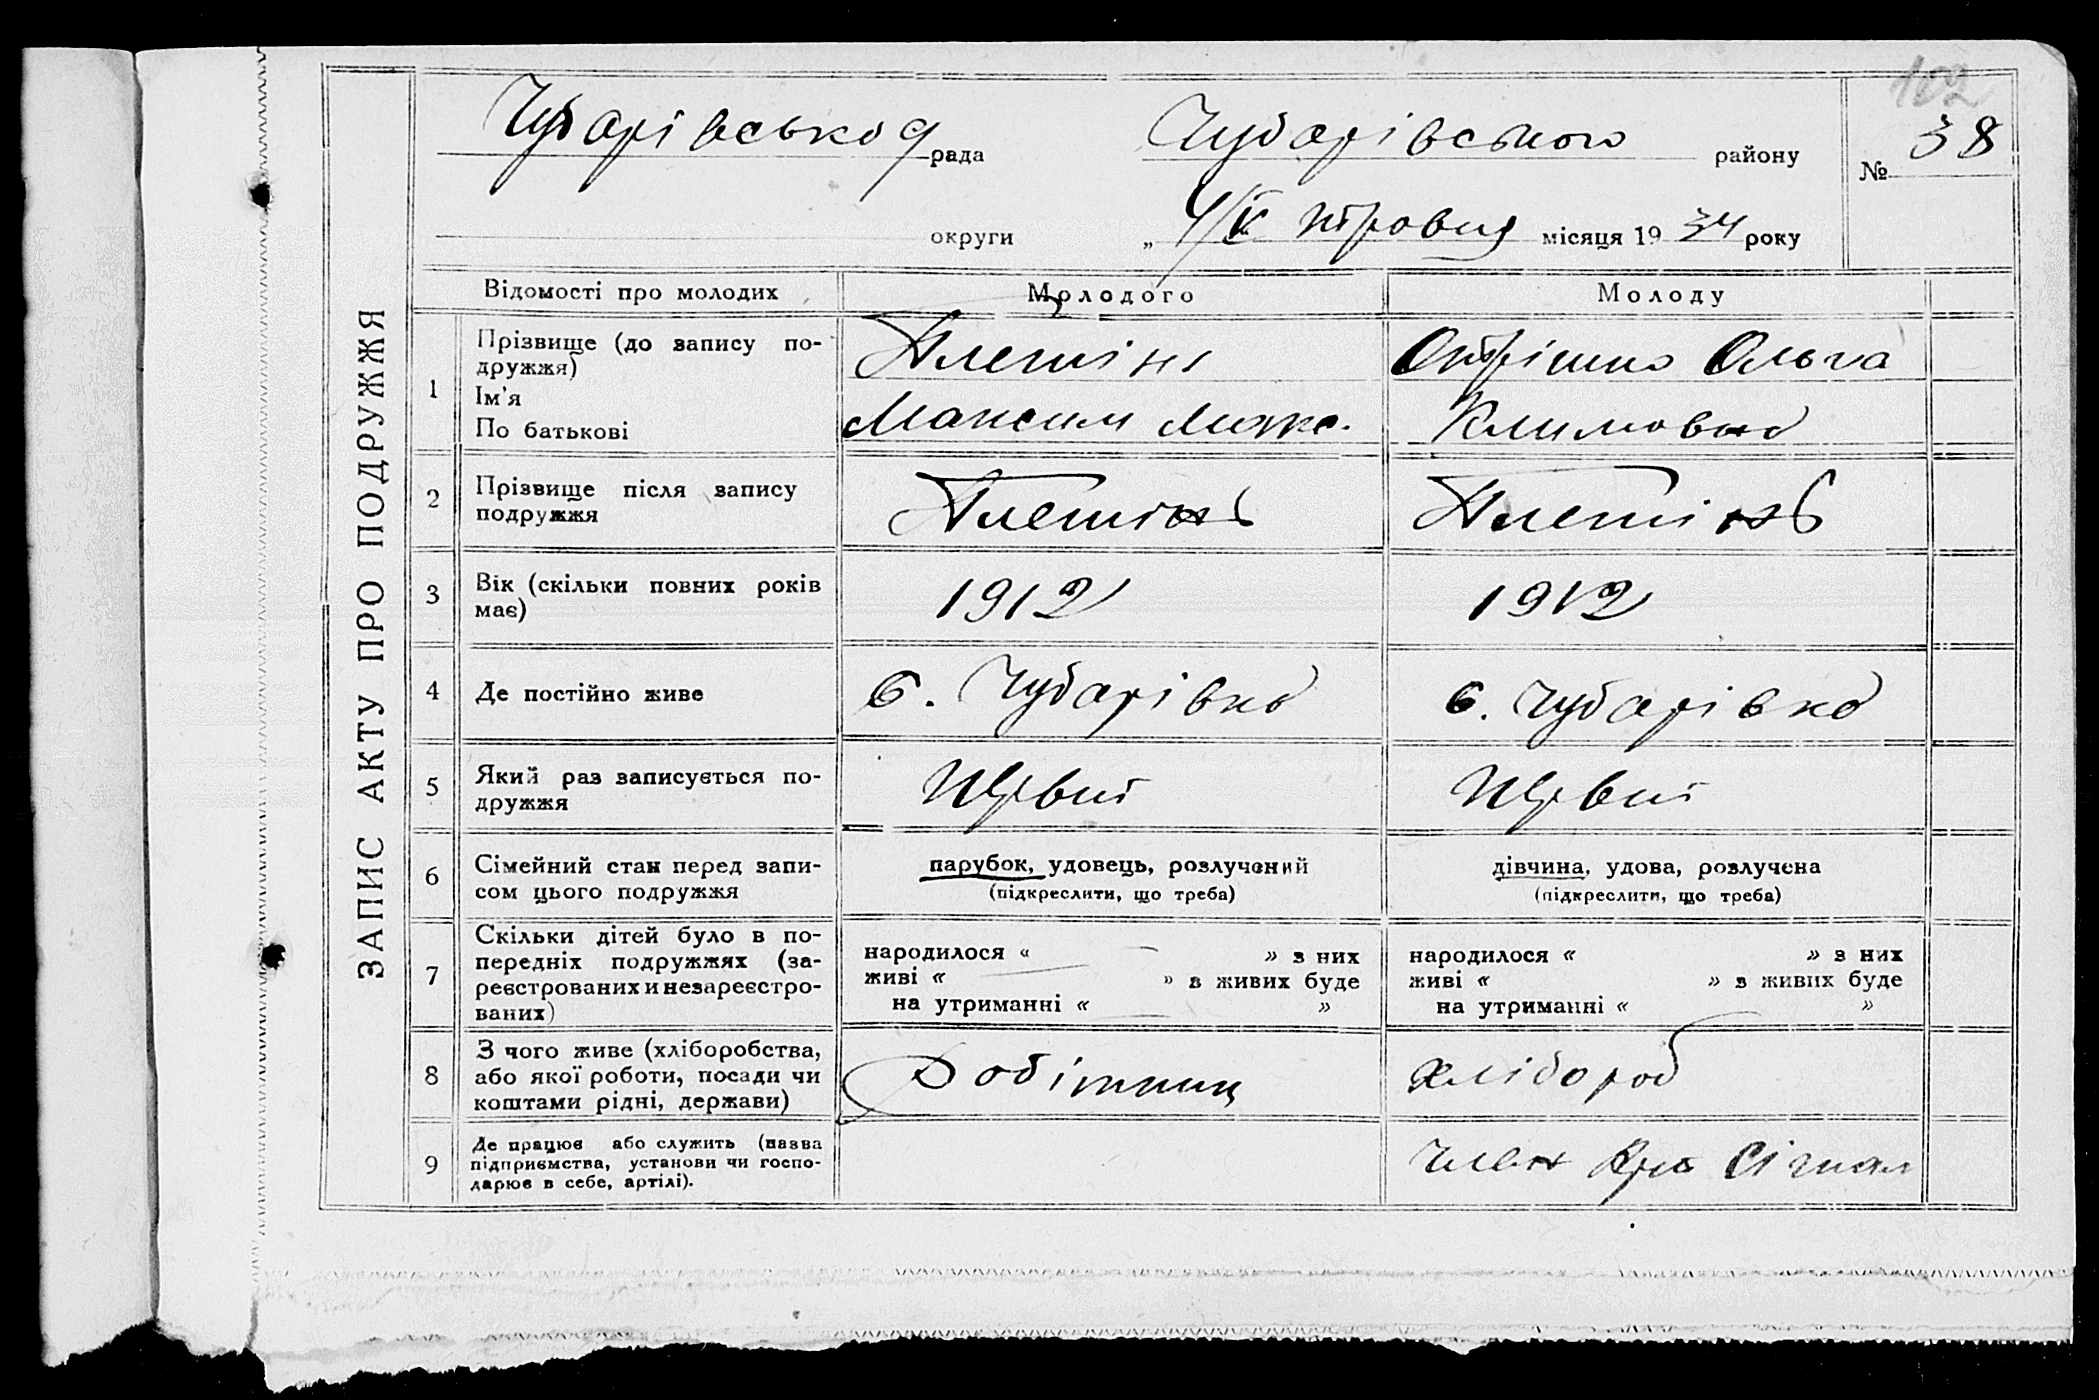 102
Чубарівська рада Чубарівського району № 38
округи „ 4/V місяця 1934 року
ЗАПИС АКТУ ПРО ПОДРУЖЖЯ
Відомості про молодих Молодого Молоду
1 Прізвище (до запису по-
дружжя)
Ім'я
По батькові
Плетінь
Максим
Ольга
Климовна
2 Прізвище після запису
подружжя
Плетінь
Плетінь
3 Вік (скільки повних років
має)
1912
1912
4 Де постійно живе
с. Чубарівка
с. Чубарівка
5 Який раз записується по-
дружжя
Первий
Первий
6 Сімейний стан перед запи-
сом цього подружжя
парубок, удовець, розлучений
(підкреслити, що треба)
дівчина, удова, розлучена
(підкреслити, що треба)
7 Скільки дітей було в по-
передніх подружжях (за-
реєстрованих и незареєстро-
ваних)
народилося « — » з них
живі « — » в живих буде
на утриманні « — »
народилося « » з них
живі « » з живих буде
на утриманні « — »
8 З чого живе (хліборобства,
або якої роботи, посади чи
коштами рідні, держави)
Робітник
хлібороб
9 Де працює або служить (назва
підприємства, установи чи госпо-
дарює в себе, артілі).
член Сігнал